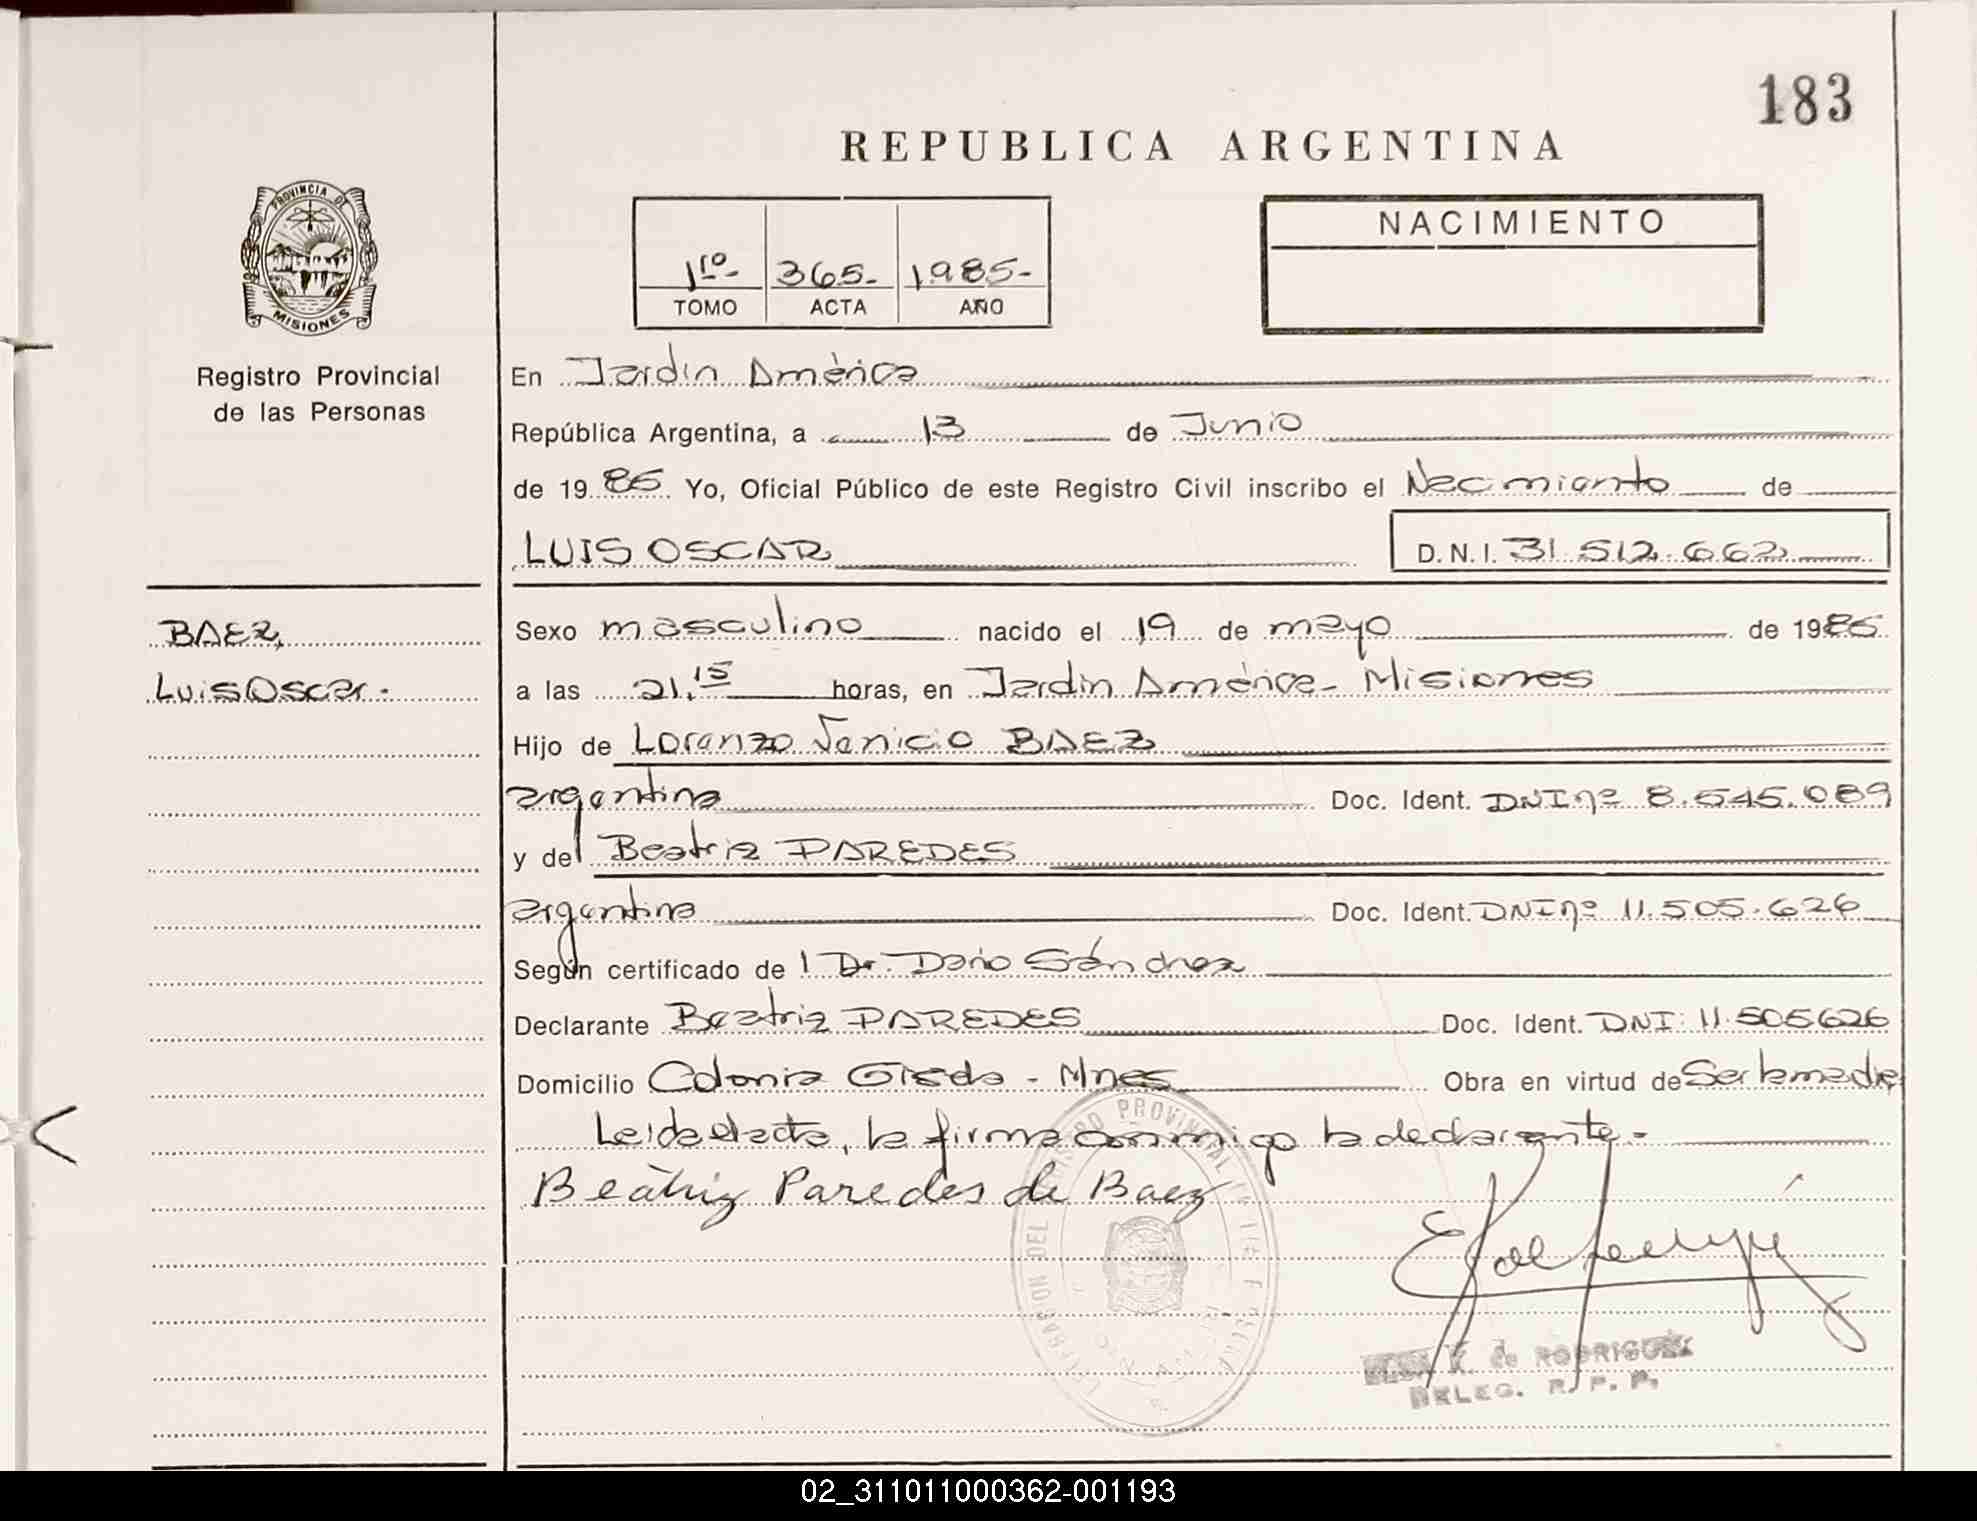 183
REPUBLICA ARGENTINA
PROVINCIA DE
MISIONES
Registro Provincial
de las Personas
1ro- 365- 1985-
TOMO ACTA AÑO
NACIMIENTO
En Jardín América
República Argentina, a 13 de Junio
de 1985 Yo, Oficial Público de este Registro Civil inscribo el Nacimiento de
LUIS OSCAR D.N.I. 31.512.662
BAEZ,
Luis Oscar.
Sexo masculino nacido el 19 de mayo de 1985
a las 21,15 horas, en Jardín América- Misiones
Hijo de Lorenzo BAEZ
argentina Doc. Ident. DNI nº 8.545.089
y de Beatriz PAREDES
argentina Doc. Ident. DNI nº 11.505.626
Según certificado de Dr. Darío Sánchez
Declarante Beatriz PAREDES Doc. Ident. DNI: 11.505626
Domicilio Colonia - Mnes Obra en virtud de Ser la madre
Leida el acta, la firma conmigo la declarante-
Beatriz Paredes de Baez
de RODRIGUEZ
DELEG. R. P. P.
02_311011000362-001193